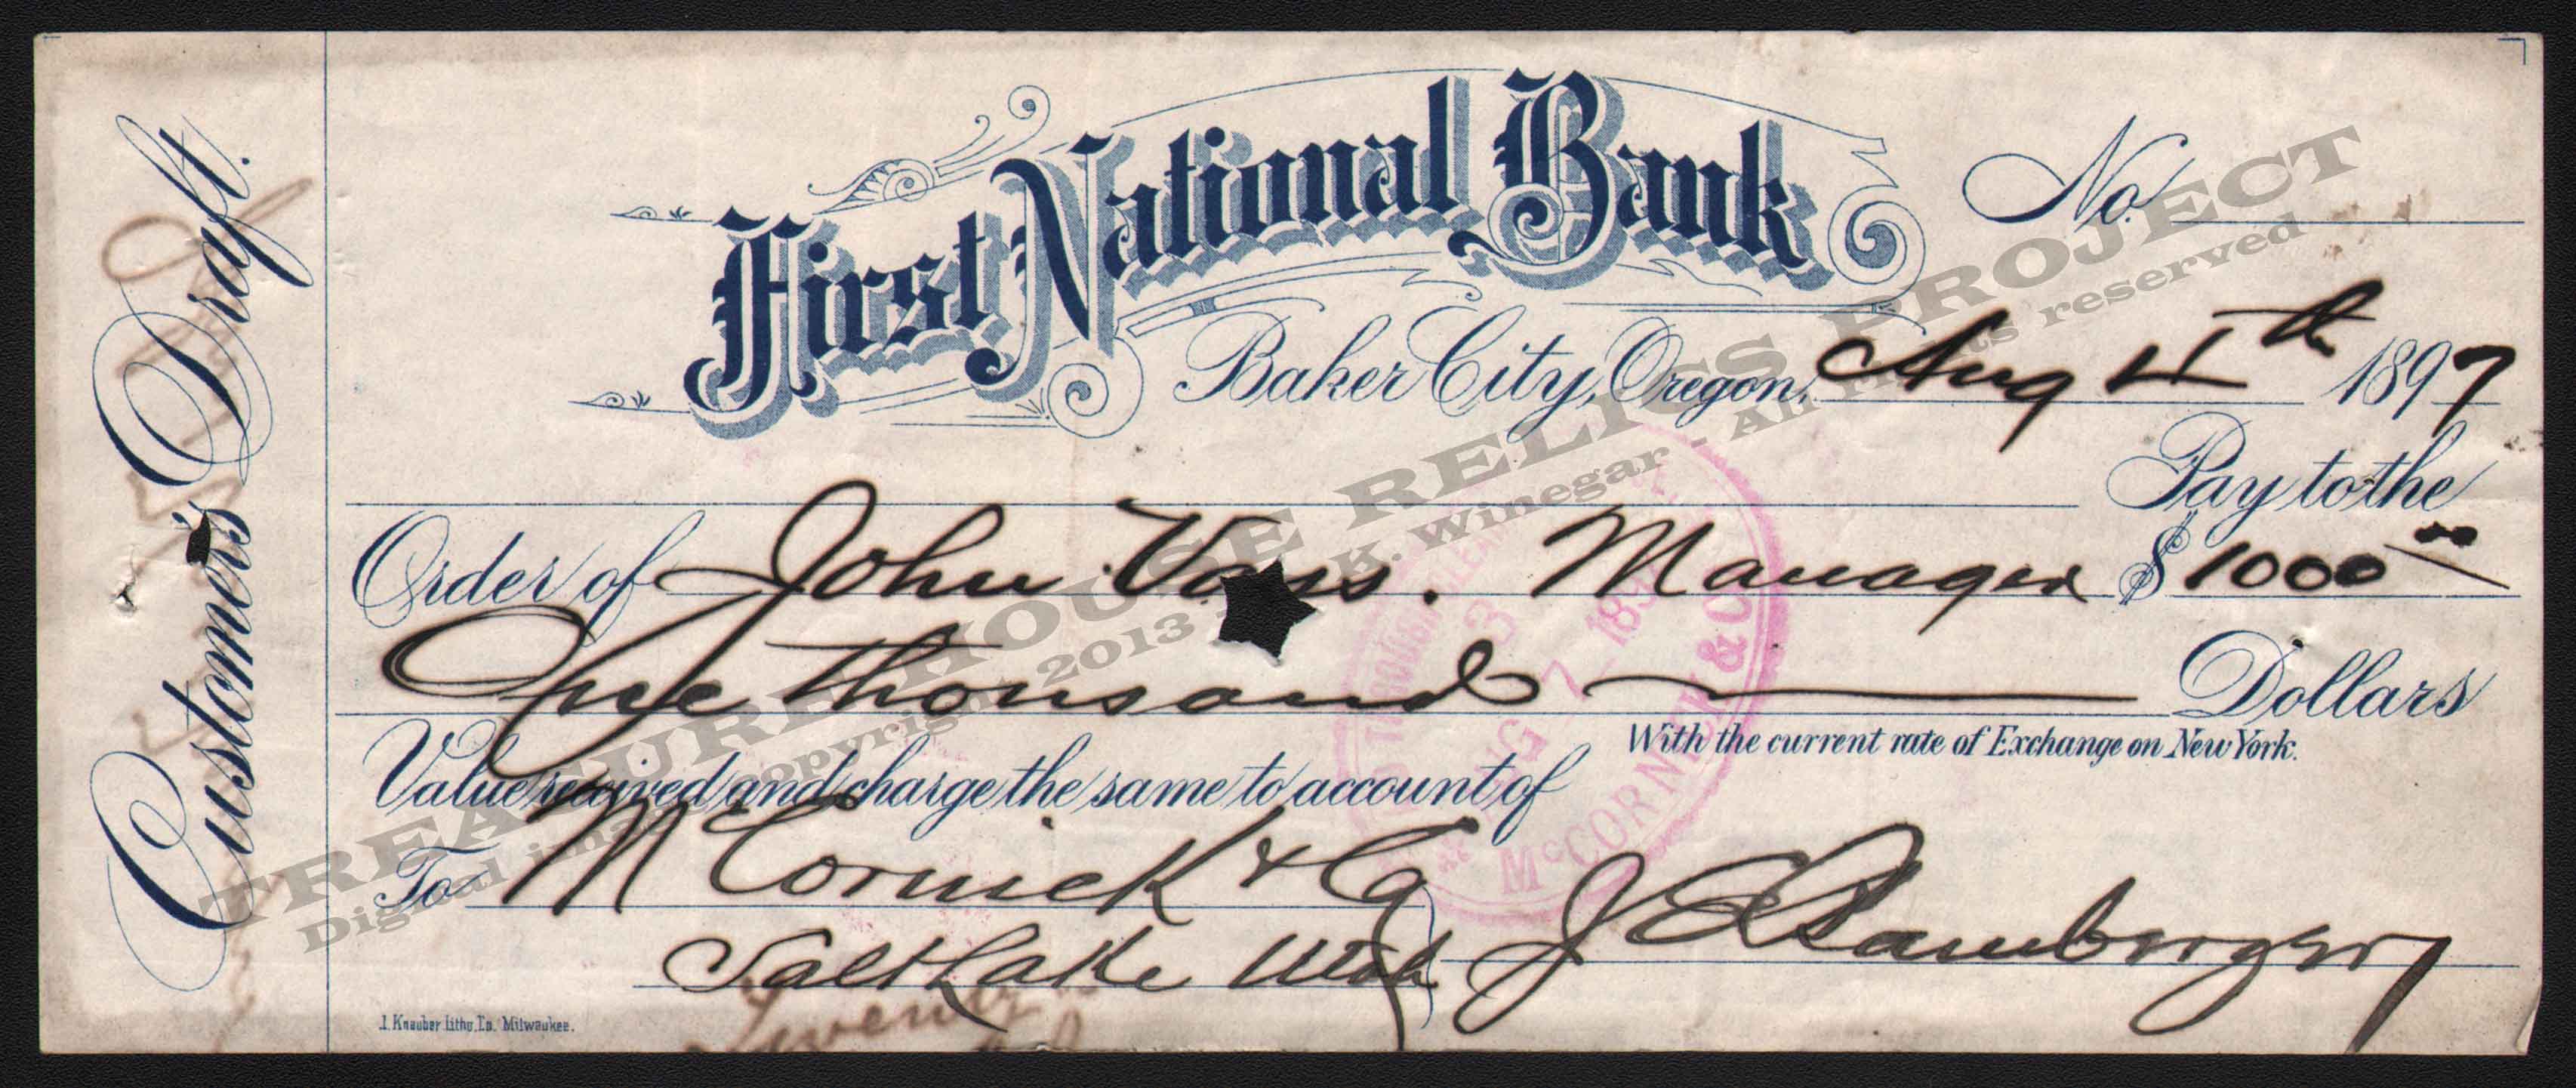 Customer's Draft.
First National Bank
No.
Baker City, Oregon, Aug 4th 1897
Pay to the
Order of John Voss. Manager $ 1000 00
One thousand Dollars
With the current rate of Exchange on New York.
Value received and charge the same to account of
To McCornick & Co
Salt Lake Utah
J E Bamberger
J. Knauber Litho. Co. Milwaukee.
AUG 7 189
McCORNICK & CO
TREASURE HOUSE RELICS PROJECT
Digital image copyright 2013 K. Winegar - All rights reserved